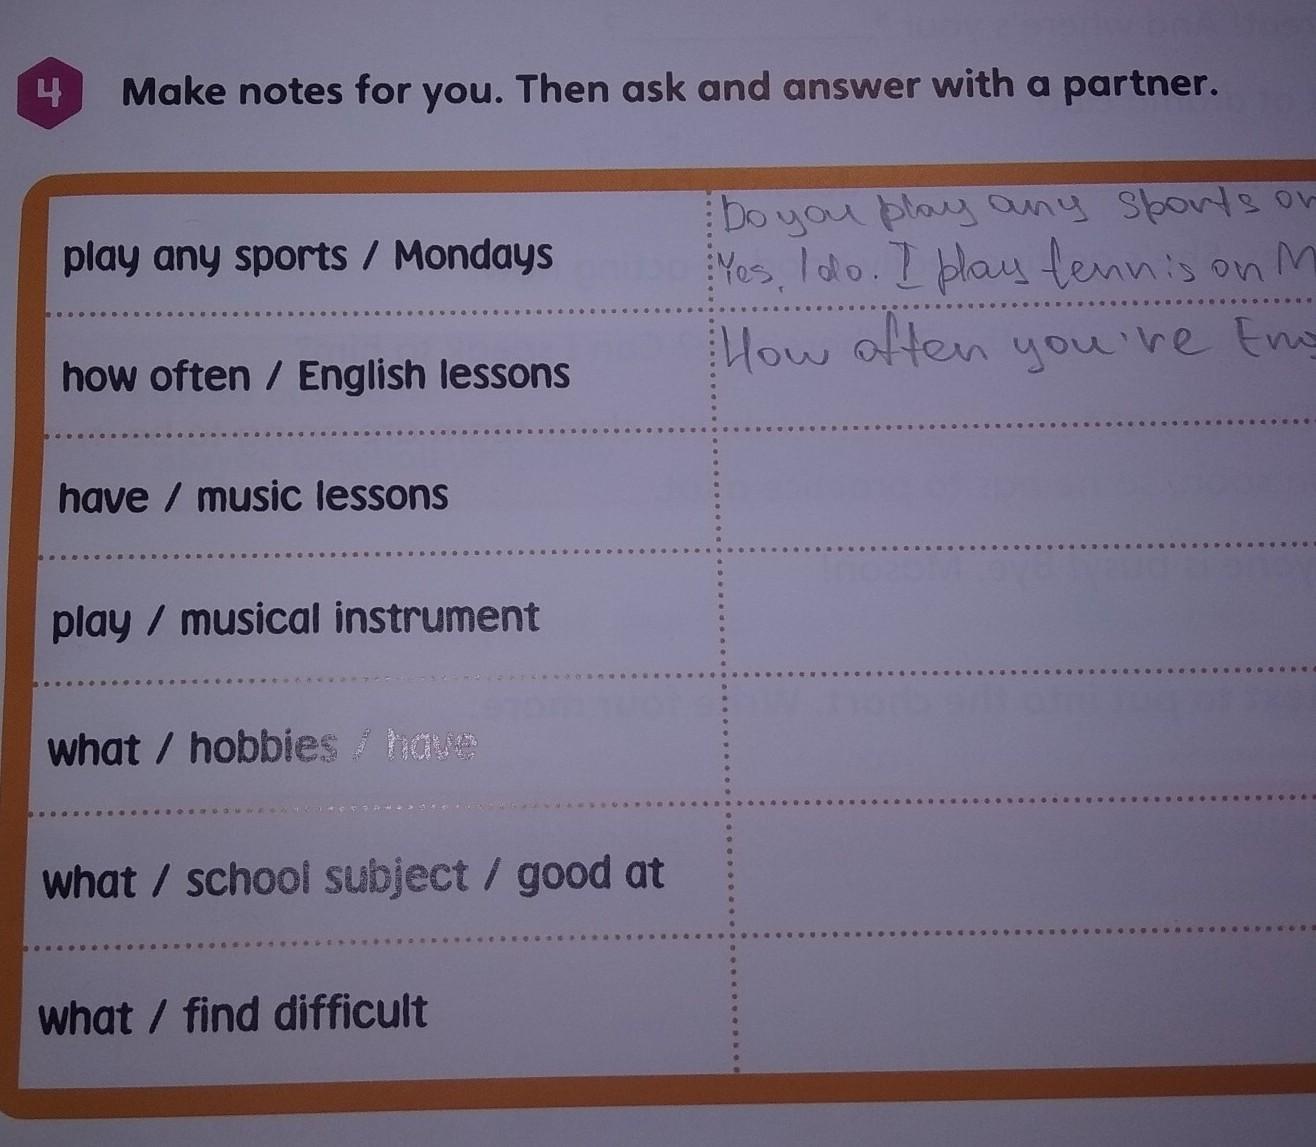 4 Make notes for you. Then ask and answer with a partner.
play any sports / Mondays
Do you play any sports on
Yes, I do. I play tennis on M
how often / English lessons
How often you've Eng
have / music lessons
play / musical instrument
what / hobbies / have
what / school subject / good at
what / find difficult